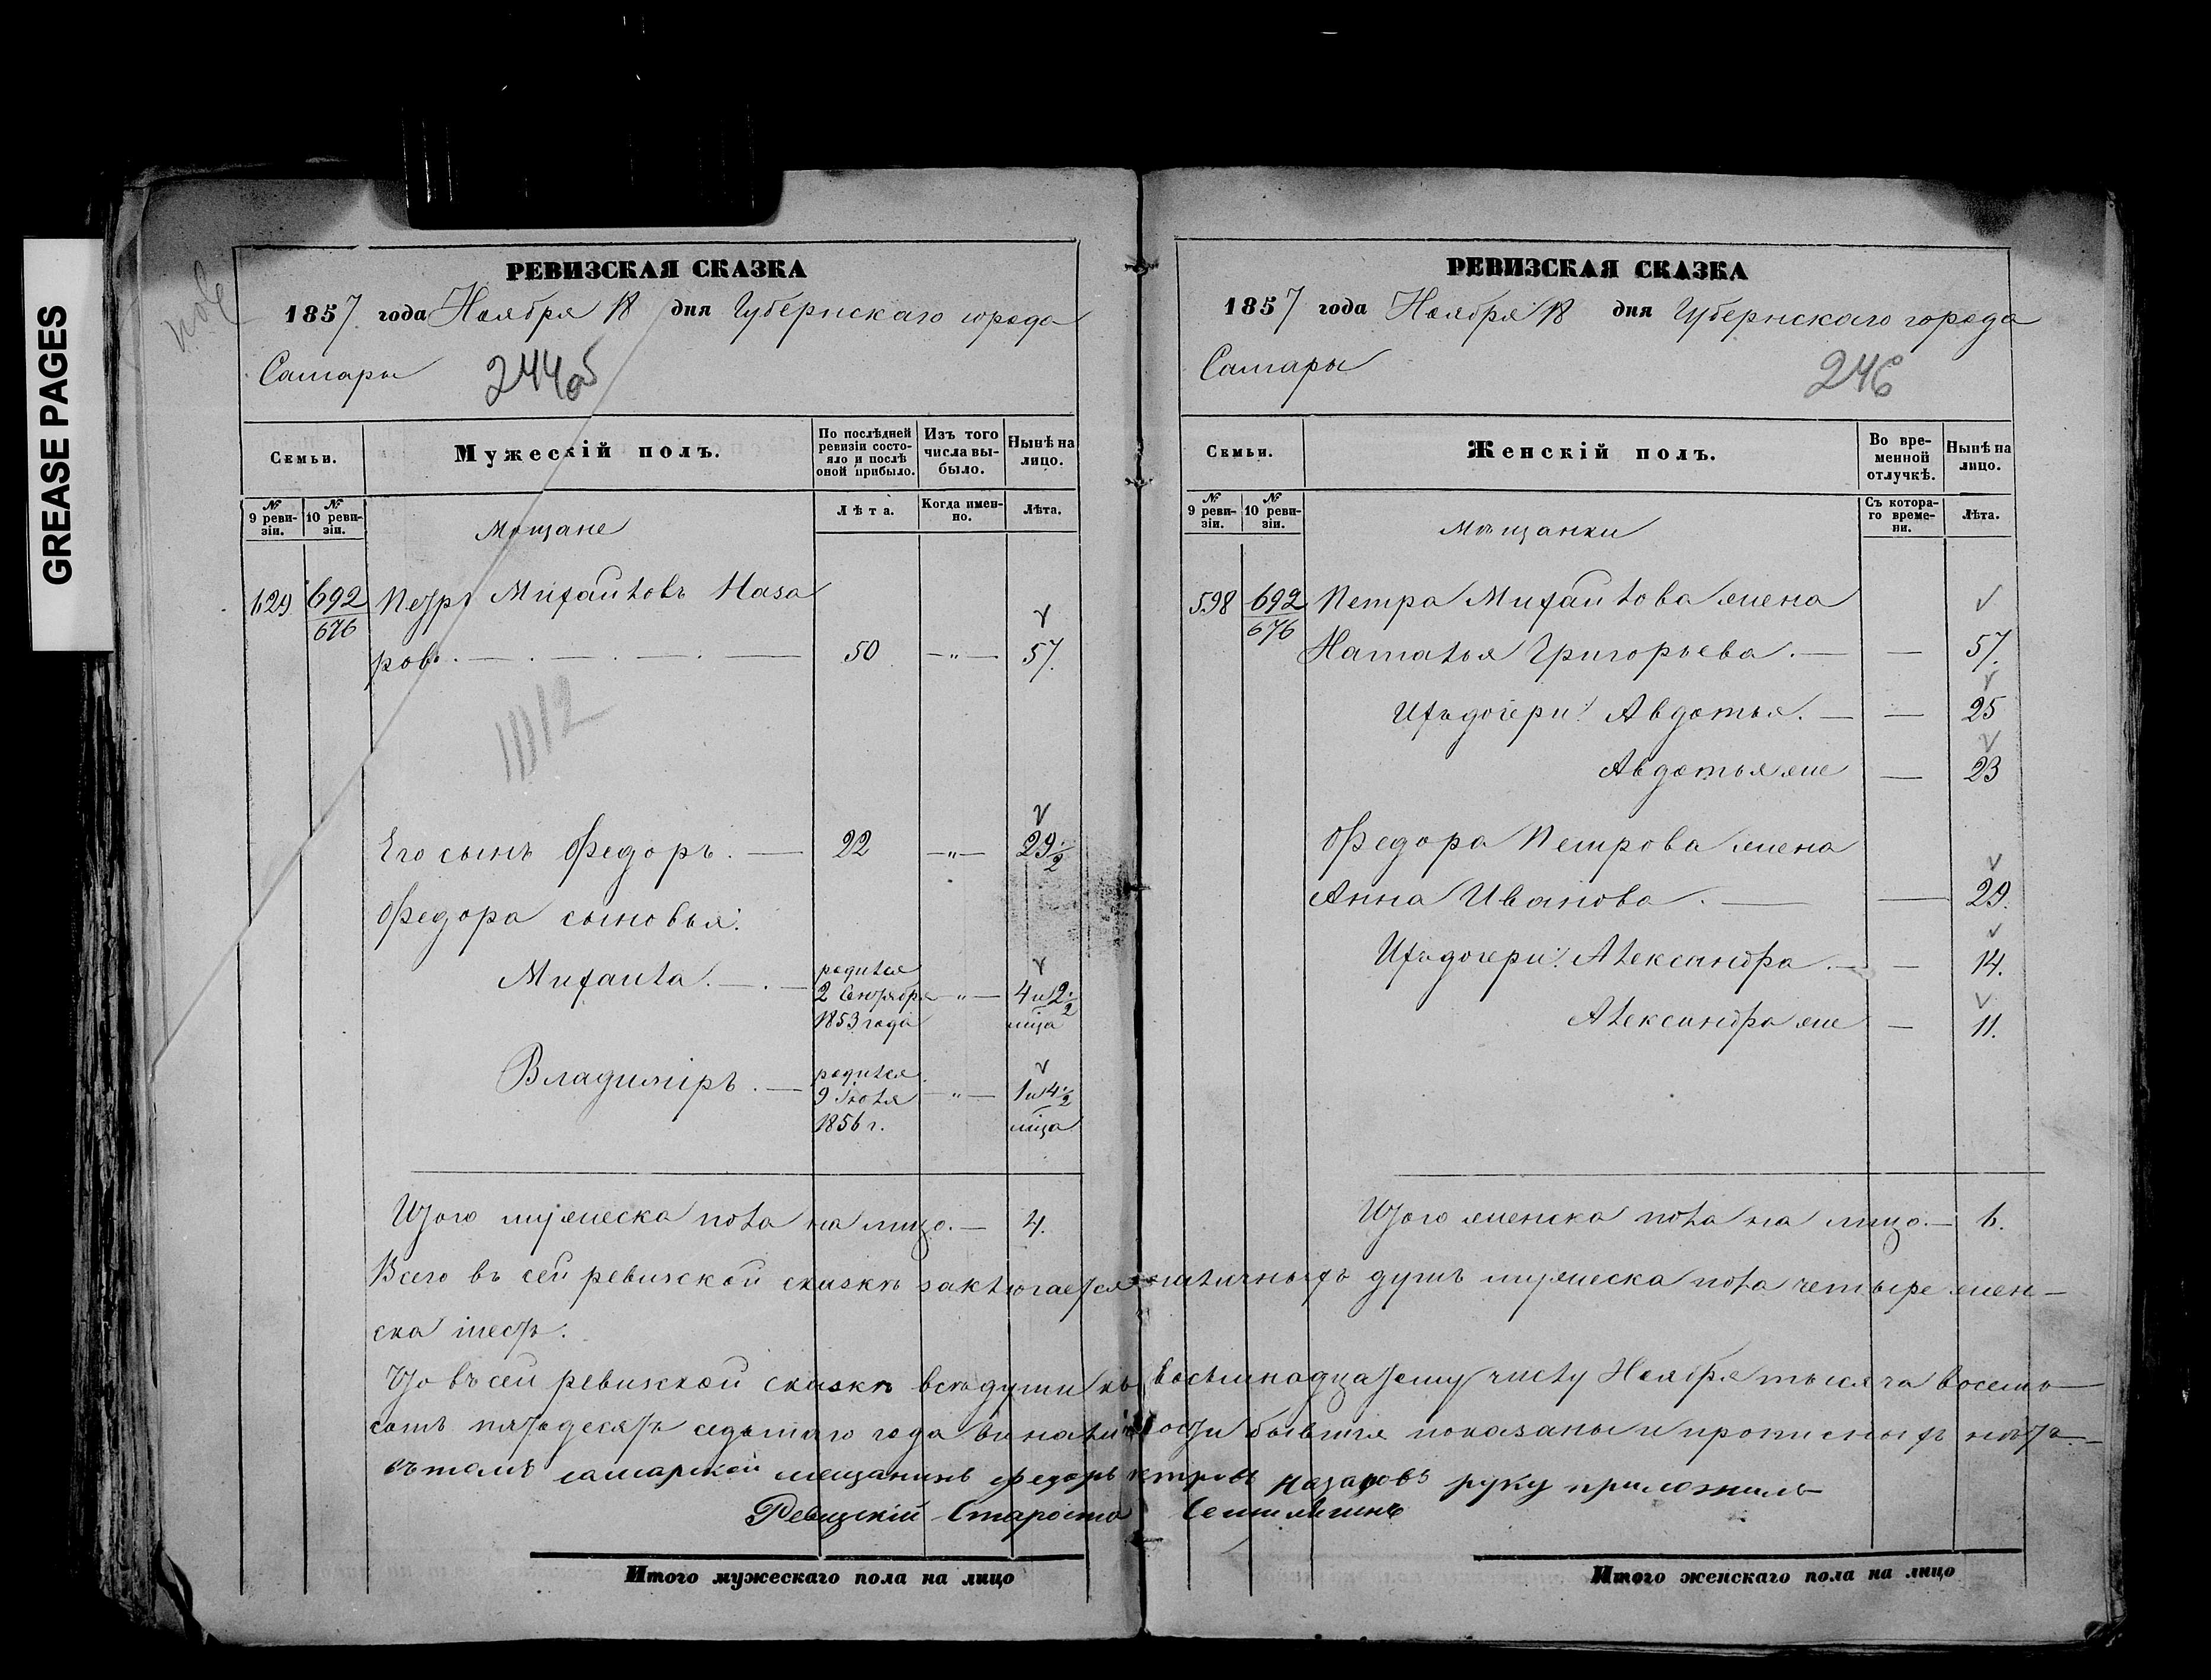 GREASE PAGES
РЕВИЗСКАЯ СКАЗКА
1857 года Ноября 18 дня Губернскаго города
Самары 244об
Семьи.
Мужескій полъ.
По послѣдней ревизіи состояло и послѣ оной прибыло.
Изъ того числа выбыло.
Нынѣ на лицо.
№ 9 ревизіи.
№ 10 ревизіи.
Мѣщане
Лѣта.
Когда именно.
Лѣта.
629. 692/676 Петръ Михайловъ Наза
ровъ. 50 —"— 57.
Его сынъ Федоръ. — 22 —"— 29½
Федора сыновья:
Михайла. — родился 2 Сентября 1853 года —"— 4 и 2½ мѣца
Владиміръ. — родился 9 Іюля 1856 г. —"— 1 и 4½ мѣца
Итого мужеска пола на лицо. — 4.
РЕВИЗСКАЯ СКАЗКА
1857 года Ноября 18 дня Губернскаго города
Самары 246
Семьи.
Женскій полъ.
Во временной отлучкѣ.
Нынѣ на лицо.
№ 9 ревизіи.
№ 10 ревизіи.
Мѣщанки
Съ котораго времени.
Лѣта.
598 692/676 Петра Михайлова жена
Наталья Григорьева. — — 57.
Ихъ дочери: Авдотья. — — 25
Авдотья же — 23
Федора Петрова жена
Анна Иванова. — — 29.
Ихъ дочери: Александра. — — 14.
Александра же — 11.
Итого женска пола на лицо. — 6.
Всего въ сей ревизской сказкѣ заключается наличныхъ душъ мужеска пола четыре жен-
ска шесть.
Что въ сей ревизской сказкѣ всѣ души къ восемнадцатому числу Ноября тысяча восемь
сотъ пятьдесятъ седьмаго года въ наличности бывшія показаны и прописныхъ нѣтъ.
въ томъ самарской мещанинъ федоръ петровъ назаровъ руку приложилъ
Ревизскій Староста
Итого мужескаго пола на лицо
Итого женскаго пола на лицо